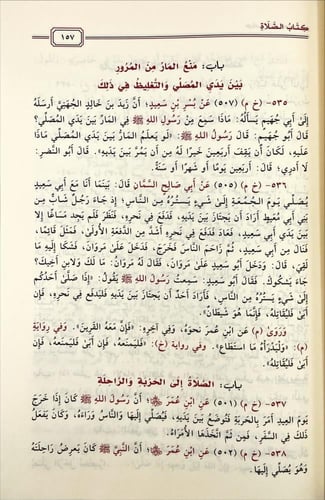 كِتَابُ الصَّلَاةِ
١٥٧
بَابُ: مَنْعُ المَارِّ مِنَ المُرُورِ
بَيْنَ يَدَيِ المُصَلِّي وَالتَّغْلِيظُ فِي ذَلِكَ
٥٣٥- (خ م) (٥٠٧) عَنْ بُسْرِ بْنِ سَعِيدٍ؛ أَنَّ زَيْدَ بْنَ خَالِدٍ الجُهَنِيَّ أَرْسَلَهُ
إِلَى أَبِي جُهَيْمٍ يَسْأَلُهُ: مَاذَا سَمِعَ مِنْ رَسُولِ اللهِ ﷺ فِي المَارِّ بَيْنَ يَدَيِ المُصَلِّي؟
قَالَ أَبُو جُهَيْمٍ: قَالَ رَسُولُ اللهِ ﷺ: «لَوْ يَعْلَمُ المَارُّ بَيْنَ يَدَيِ المُصَلِّي مَاذَا
عَلَيْهِ، لَكَانَ أَنْ يَقِفَ أَرْبَعِينَ خَيْرًا لَهُ مِنْ أَنْ يَمُرَّ بَيْنَ يَدَيْهِ». قَالَ أَبُو النَّضْرِ:
لَا أَدْرِي؛ قَالَ: أَرْبَعِينَ يَوْمًا أَو شَهْرًا أَوْ سَنَةً.
٥٣٦- (خ م) (٥٠٥) عَنْ أَبِي صَالِحٍ السَّمَّانِ قَالَ: بَيْنَمَا أَنَا مَعَ أَبِي سَعِيدٍ
يُصَلِّي يَوْمَ الجُمُعَةِ إِلَى شَيْءٍ يَسْتُرُهُ مِنَ النَّاسِ؛ إِذْ جَاءَ رَجُلٌ شَابٌّ مِنْ
بَنِي أَبِي مُعَيْطٍ أَرَادَ أَنْ يَجْتَازَ بَيْنَ يَدَيْهِ، فَدَفَعَ فِي نَحْرِهِ، فَنَظَرَ فَلَمْ يَجِدْ مَسَاغًا إِلَّا
بَيْنَ يَدَيْ أَبِي سَعِيدٍ، فَعَادَ فَدَفَعَ فِي نَحْرِهِ أَشَدَّ مِنَ الدَّفْعَةِ الأُولَى، فَمَثَلَ قَائِمًا،
فَنَالَ مِنْ أَبِي سَعِيدٍ، ثُمَّ زَاحَمَ النَّاسَ فَخَرَجَ، فَدَخَلَ عَلَى مَرْوَانَ، فَشَكَا إِلَيْهِ مَا
لَقِيَ، قَالَ: وَدَخَلَ أَبُو سَعِيدٍ عَلَى مَرْوَانَ، فَقَالَ لَهُ مَرْوَانُ: مَا لَكَ وَلِابْنِ أَخِيكَ؟
جَاءَ يَشْكُوكَ. فَقَالَ أَبُو سَعِيدٍ: سَمِعْتُ رَسُولَ اللهِ ﷺ يَقُولُ: «إِذَا صَلَّى أَحَدُكُمْ
إِلَى شَيْءٍ يَسْتُرُهُ مِنَ النَّاسِ، فَأَرَادَ أَحَدٌ أَنْ يَجْتَازَ بَيْنَ يَدَيْهِ فَلْيَدْفَعْ فِي نَحْرِهِ، فَإِنْ
أَبَى فَلْيُقَاتِلْهُ، فَإِنَّمَا هُوَ شَيْطَانٌ».
وَرَوَى (م) عَنِ ابْنِ عُمَرَ نَحْوَهُ، وَفِي آخِرِهِ: «فَإِنَّ مَعَهُ القَرِينَ». وَفِي رِوَايَةٍ
(م): «وَلْيَدْرَأْهُ مَا اسْتَطَاعَ». وفي رواية (خ): «فَلْيَمْنَعْهُ، فَإِنْ أَبَى فَلْيَمْنَعْهُ، فَإِنْ أَبَى
فَلْيُقَاتِلْهُ».
بَابُ: الصَّلَاةُ إِلَى الحَرْبَةِ وَالرَّاحِلَةِ
٥٣٧- (خ م) (٥٠١) عَنِ ابْنِ عُمَرَ؛ أَنَّ رَسُولَ اللهِ ﷺ كَانَ إِذَا خَرَجَ
يَوْمَ العِيدِ أَمَرَ بِالحَرْبَةِ فَتُوضَعُ بَيْنَ يَدَيْهِ، فَيُصَلِّي إِلَيْهَا وَالنَّاسُ وَرَاءَهُ، وَكَانَ يَفْعَلُ
ذَلِكَ فِي السَّفَرِ، فَمِنْ ثَمَّ اتَّخَذَهَا الأُمَرَاءُ.
٥٣٨- (خ م) (٥٠٢) عَنِ ابْنِ عُمَرَ؛ أَنَّ النَّبِيَّ ﷺ كَانَ يَعْرِضُ رَاحِلَتَهُ
وَهُوَ يُصَلِّي إِلَيْهَا.